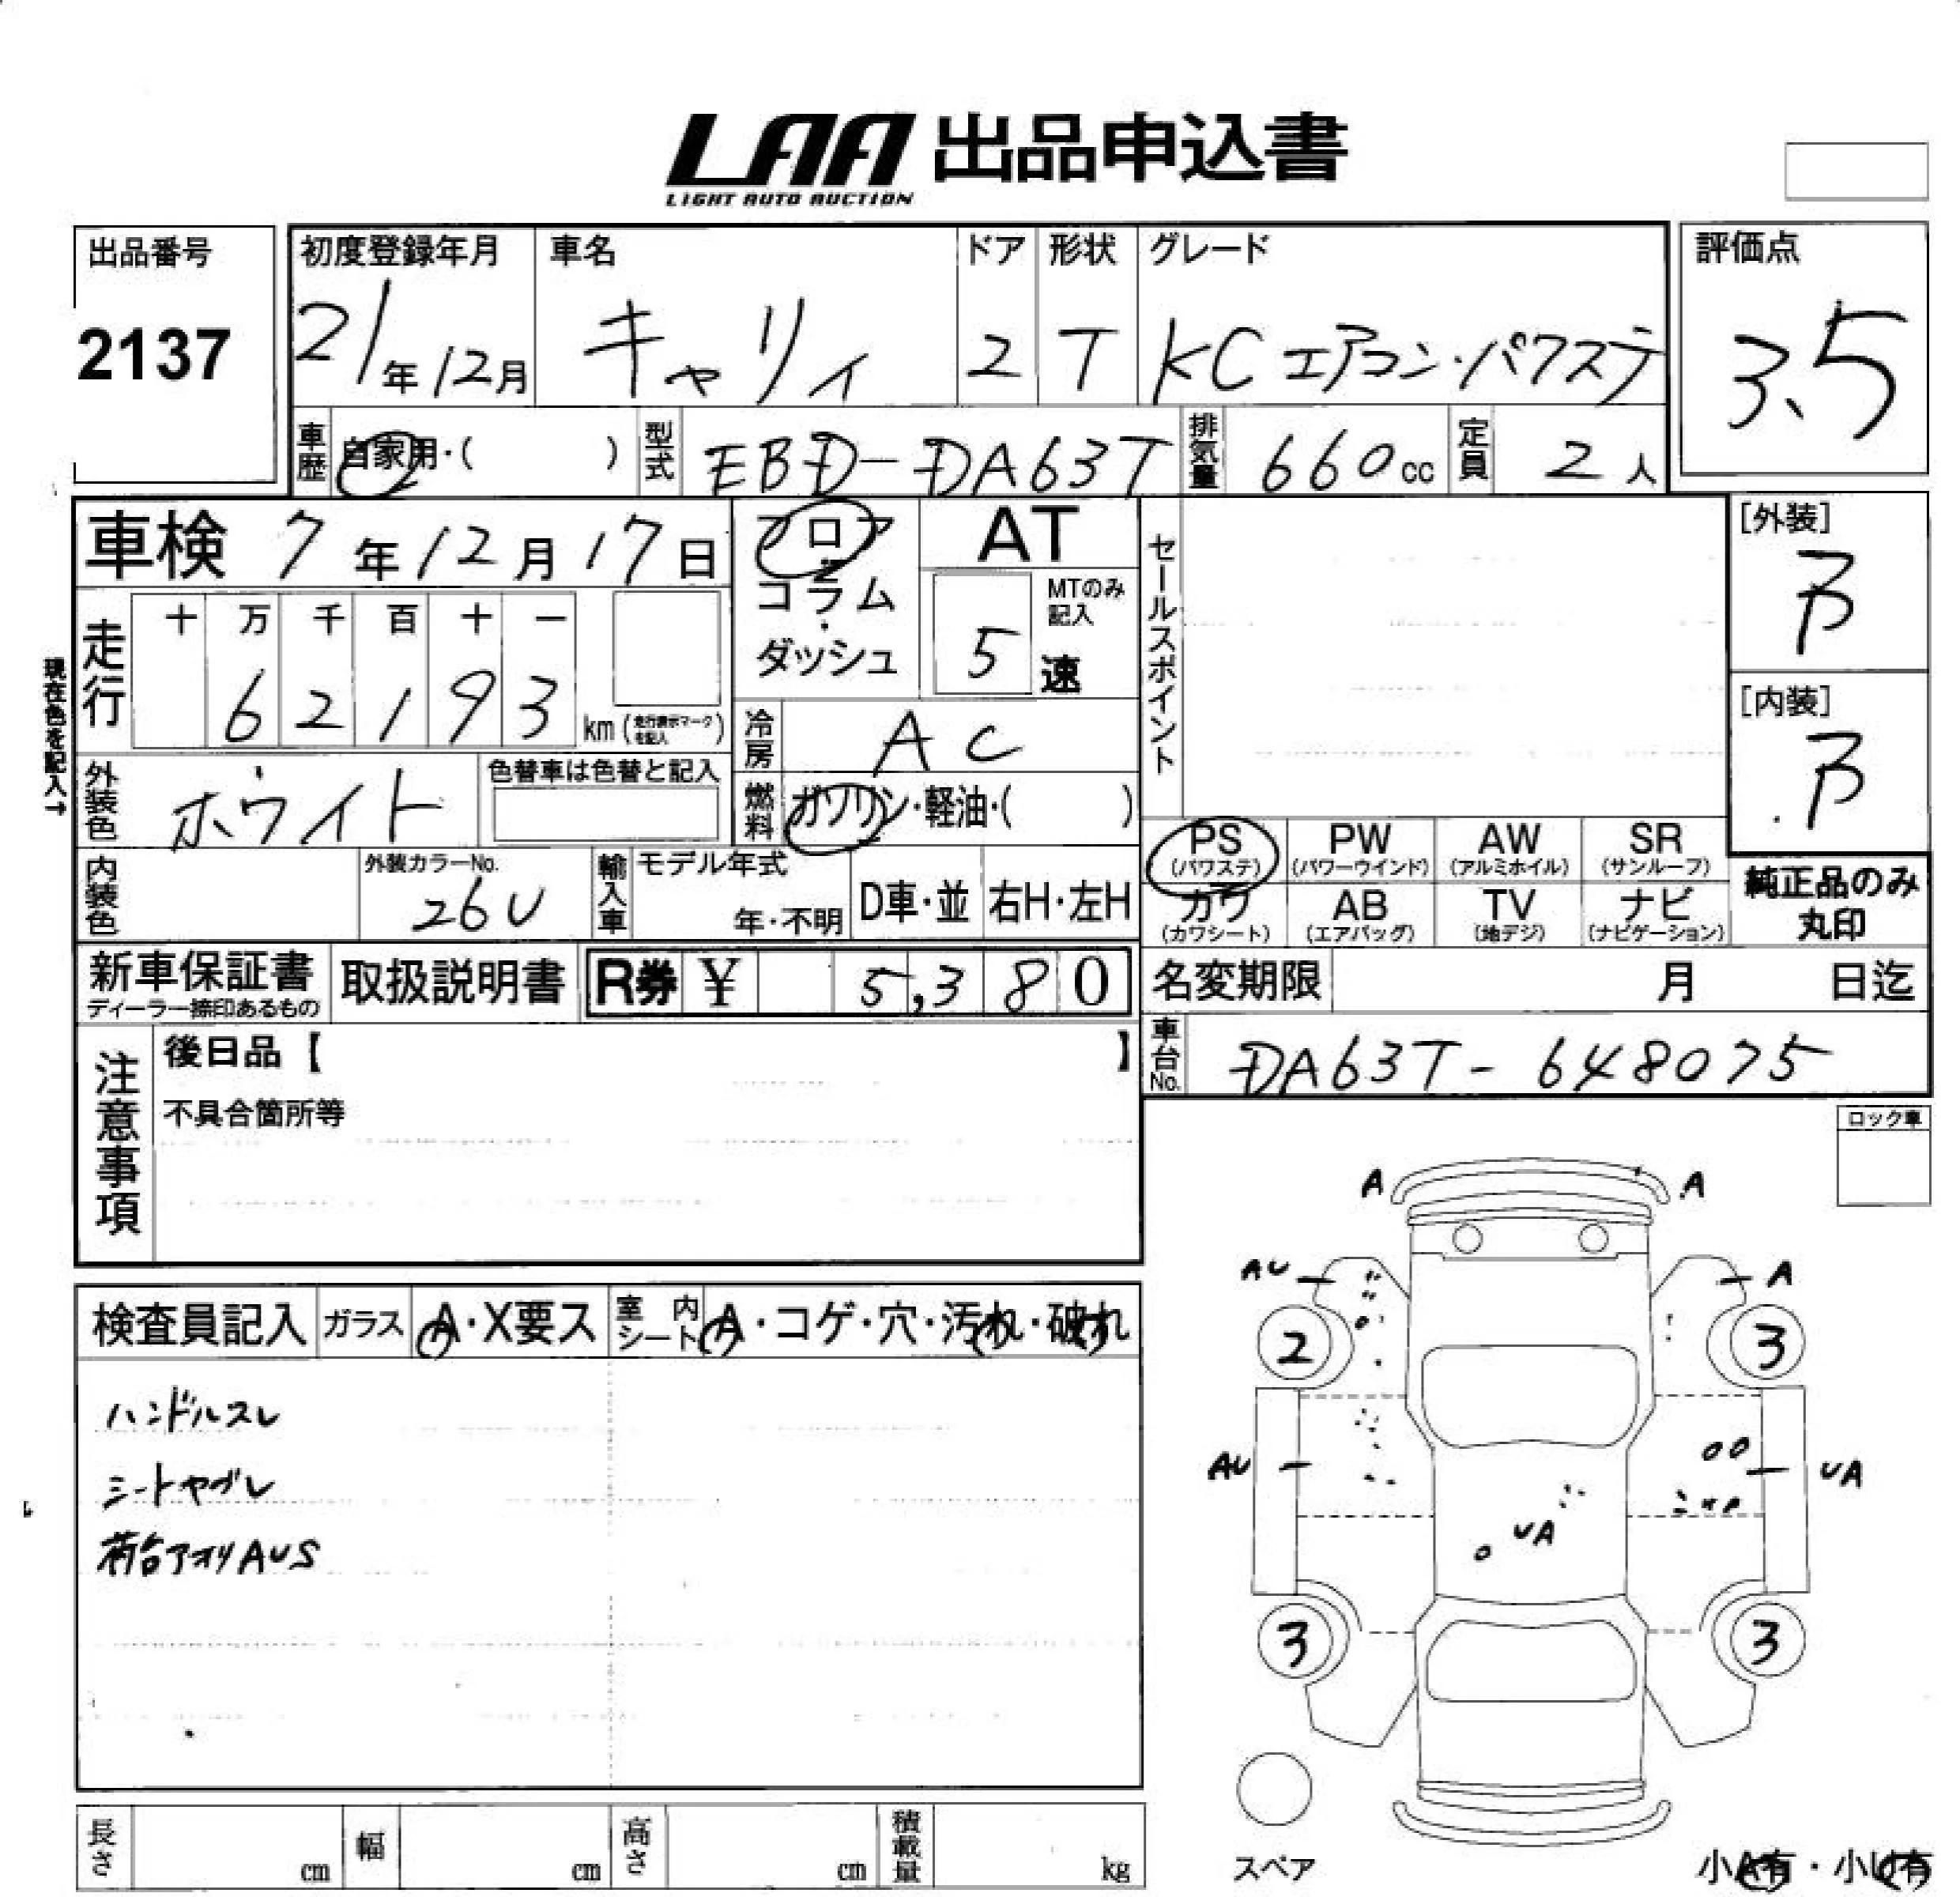 LAA 出品申込書
LIGHT AUTO AUCTION
出品番号
2137
初度登録年月 車名 ドア 形状 グレード
21年12月 キャリィ 2 T KCエアコン・パワステ
評価点
3.5
車歴 自家用・( ) 型式 EBD-DA63T 排気量 660cc 定員 2人
車検 7年12月17日
フロア
コラム
ダッシュ
AT
MTのみ記入
5速
セールスポイント
[外装]
B
[内装]
B
現在色を記入→
走行 十 万 千 百 十 一
62193 km (走行表示マークを記入)
冷房 AC
外装色 ホワイト 色替車は色替と記入
燃料 ガソリン・軽油・( )
内装色 外装カラーNo. 26U
輸入車 モデル年式 年・不明 D車・並 右H・左H
PS (パワステ) PW (パワーウインド) AW (アルミホイル) SR (サンルーフ)
カワ (カワシート) AB (エアバッグ) TV (地デジ) ナビ (ナビゲーション)
純正品のみ
丸印
新車保証書 取扱説明書 R券 ¥ 5,380
ディーラー捺印あるもの
名変期限 月 日迄
車台No. DA63T-648075
注意事項
後日品【 】
不具合箇所等
ロック車
検査員記入 ガラス A・X要ス 室内シート A・コゲ・穴・汚れ・破れ
ハンドルスレ
シートヤブレ
荷台アオリAUS
A A
AU A
2 3
AU UA
UA
3 3
スペア
小A有・小U有
長さ cm 幅 cm 高さ cm 積載量 kg